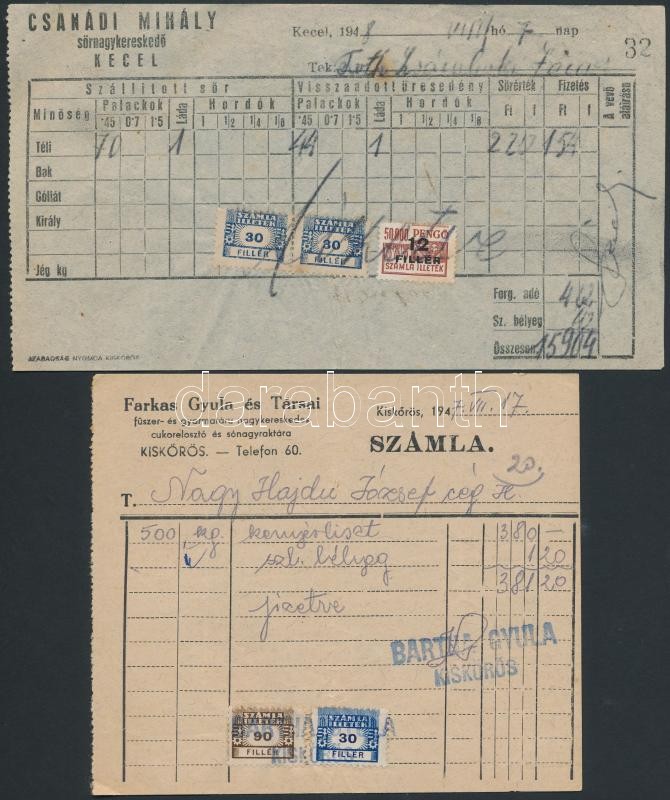 CSANÁDI MIHÁLY
sörnagykereskedő
KECEL
Kecel, 1948 VIII hó 7 nap
32
Tek. Tóth
Szállitott sör Visszaadott üresedény Sörérték Fizetés A vevő aláirása
Minőség Palackok Láda Hordók Palackok Láda Hordók Ft f Ft f
·45 0·7 1·5 1 1/2 1/4 1/8 ·45 0·7 1·5 1 1/2 1/4 1/8
Téli 70 1 44 1
Bak
Góliát
Király
Jég kg
SZÁMLA ILLETÉK 30 FILLÉR
SZÁMLA ILLETÉK 30 FILLÉR
50.000 PENGŐ 12 FILLÉR SZÁMLA ILLETÉK
Fizetve
Forg. adó
Sz. bélyeg
Összesen 15904
SZABADSÁG NYOMDA KISKŐRÖS
darabanth
Farkas Gyula és Társai
fűszer- és gyarmatáru nagykereskedes
cukorelosztó és sónagyraktára
KISKŐRÖS. — Telefon 60.
Kiskőrös, 1947. VII. 17.
SZÁMLA.
20.
T. Nagy Hajdu József cég H.
500 kg. kenyérliszt 380 —
szl. bélyeg 1 20
381 20
fizetve
BARTHA GYULA
KISKŐRÖS
SZÁMLA ILLETÉK 90 FILLÉR
SZÁMLA ILLETÉK 30 FILLÉR